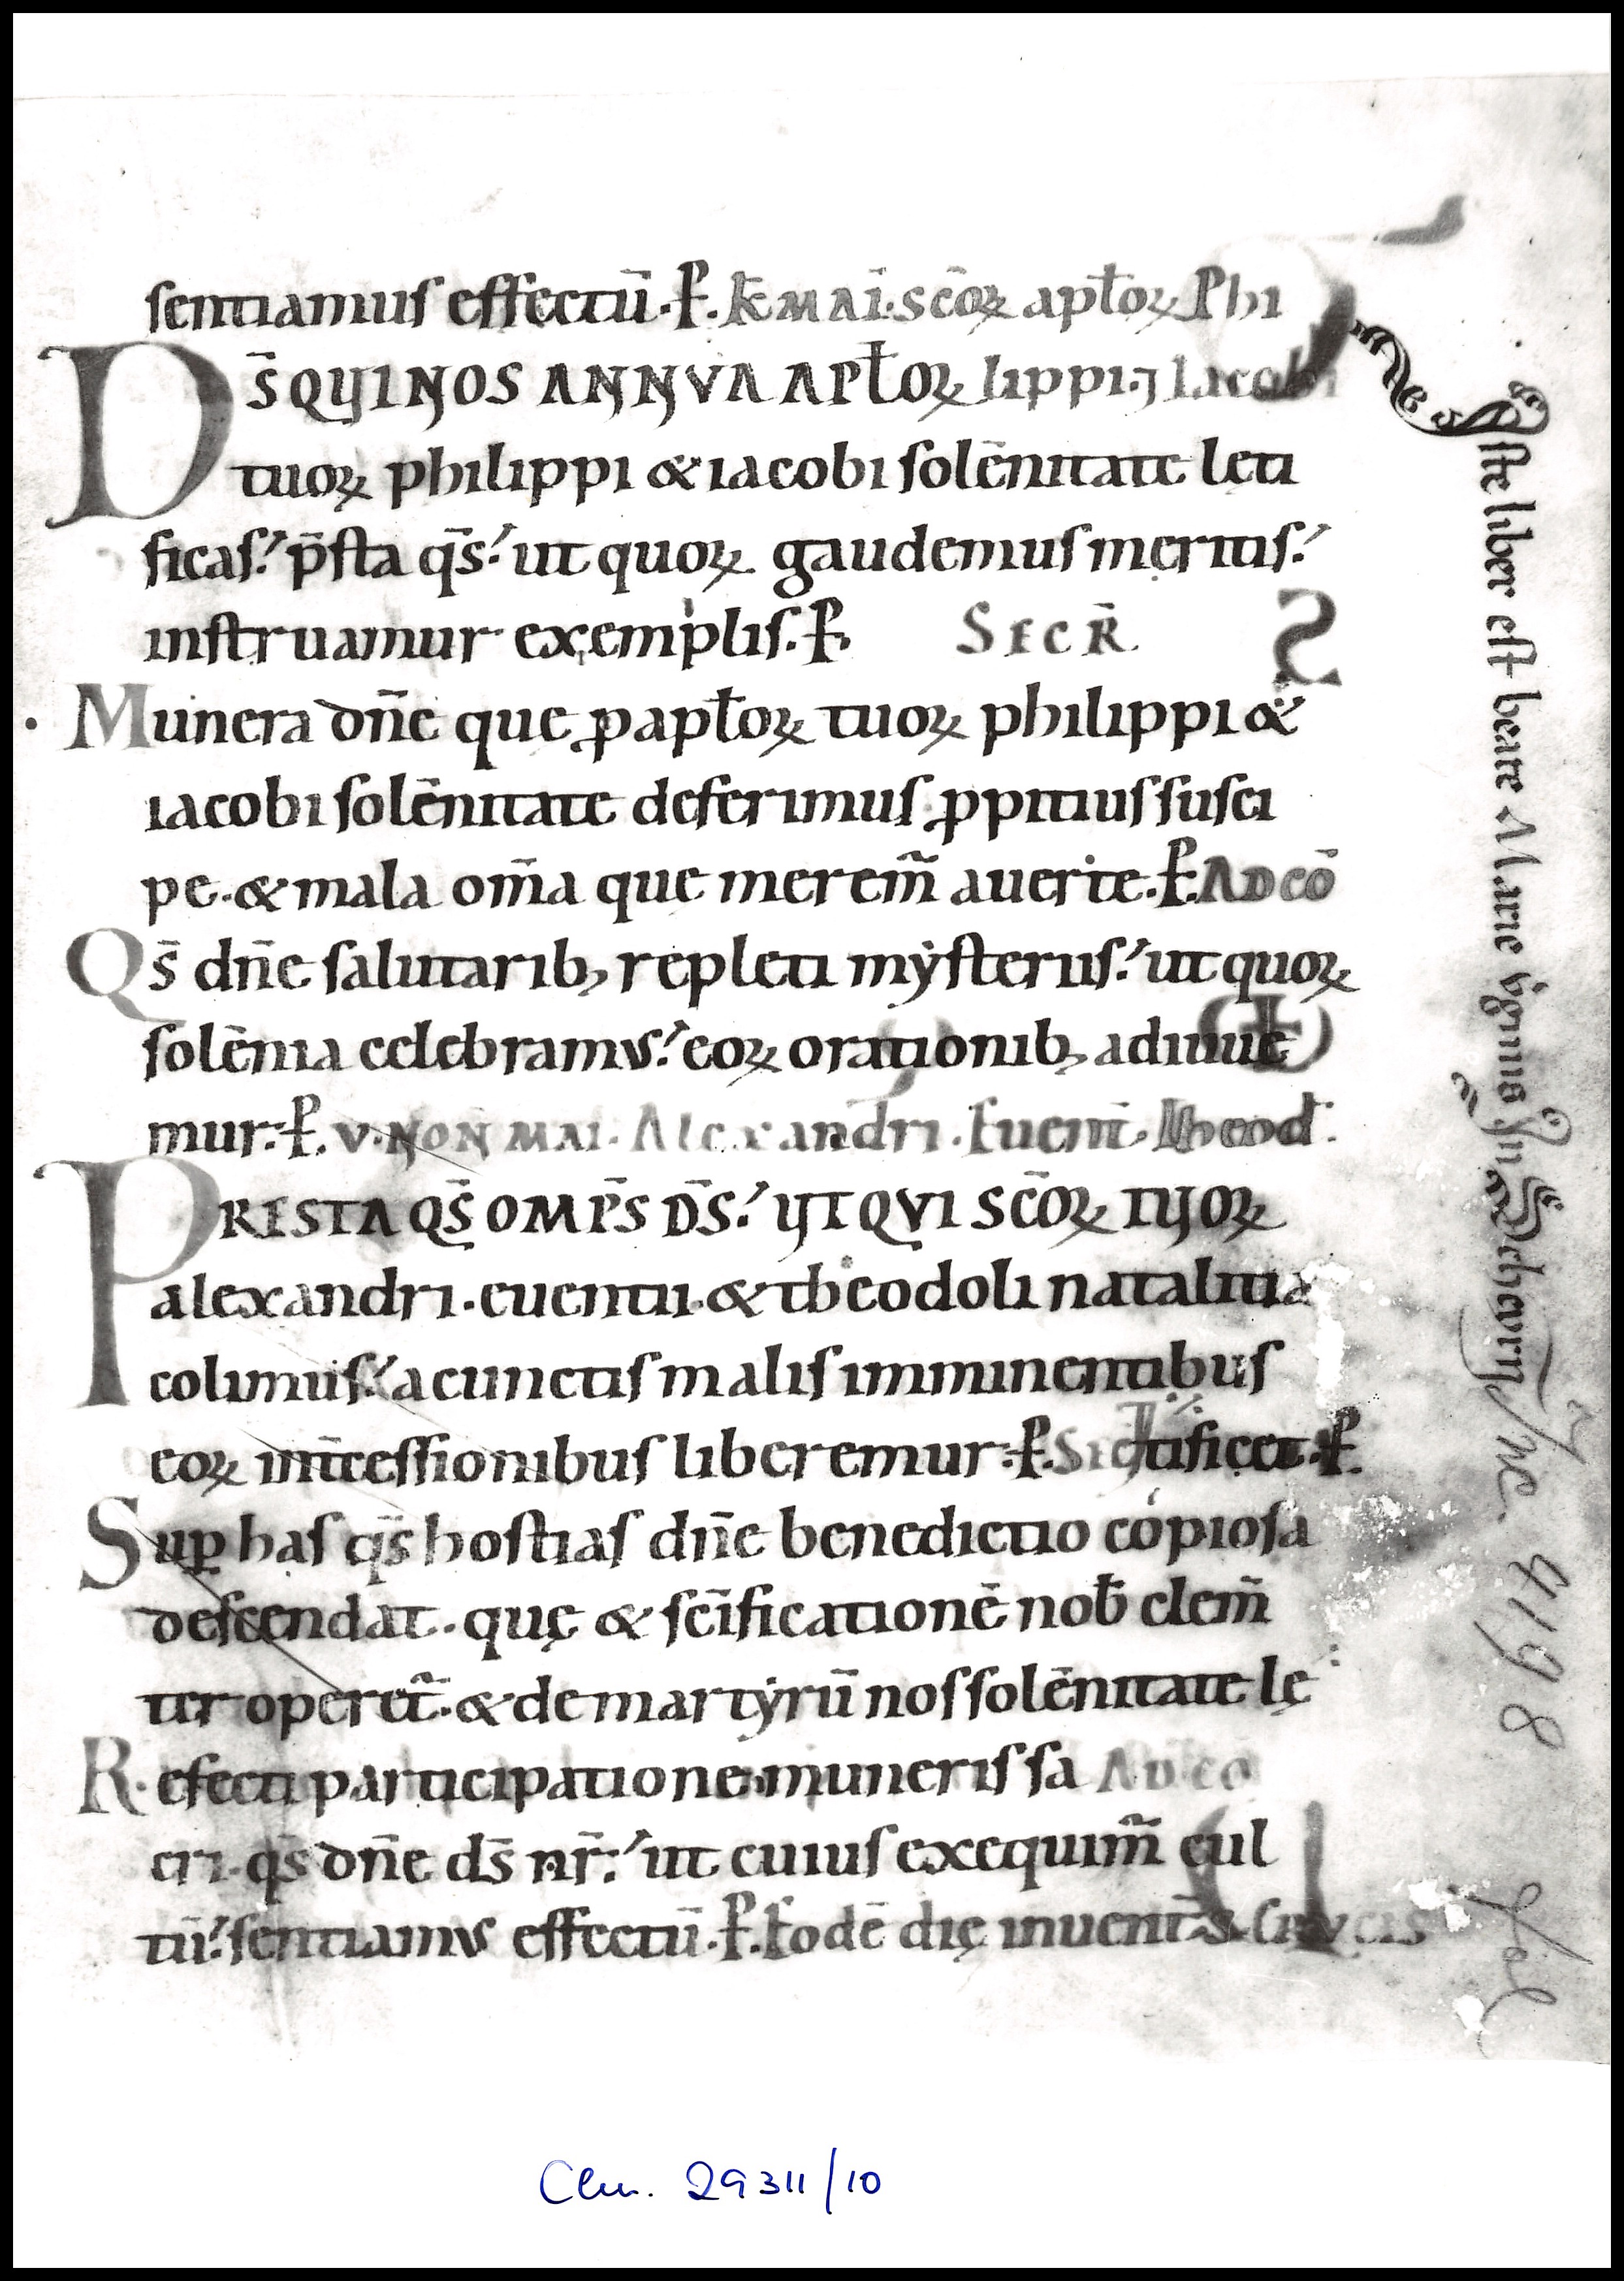 sentiamus effectū. P̵. K̄ MAĪ. SC̄OꝜ aptƚoꝝ Phi
D̄S QUI NOS ANNVA APƚOꝜ lippi ⁊ Iacobi
tuoꝝ philippi & iacobi solēnitate lęti
ficas: p̄sta q̄s: ut quoꝝ gaudemus męritis:
instruamur exemplis. P̵. SECR̄
Munera dn̄e que ꝓ apƚoꝝ tuoꝝ philippi &
iacobi solēnitate deferimus ꝓpitius susci
pe. & mala om̄a quę merem̄ auerte. P̵. AD CŌ
Qs̄ dn̄e salutarib; repleti mẏsteriis: ut quoꝝ
solēnia celebramus: eoꝝ orationib; adiuue
mur. P̵. V. NOÑ MAI. Alexandri. Euenī. Theod.
PRESTA QS̄ OMP̄S D̄S: UT QVI SC̄OꝜ TUOꝜ
alexandri. euentii. & theodoli natalitia
colimus: a cunctis malis imminentibus
eoꝝ int̄cessionibus liberemur. P̵. SEC tificet. P̵.
Suꝑ has qs̄ hostias dn̄e benedictio copiosa
descendat. quę & sc̄ificationē nob̄ clem̄
ter operet̄. & de martẏrū nos solēnitate lę
Refecti participatione muneris sa AD CŌ
cri. qs̄ dn̄e ds̄ nr̄: ut cuius exequim̄ cul
tū: sentiamus effectū. P̵. Eodē dię inuent̄ S. Crucis
Iste liber est beate Marie v̊ginis in Scheyrn
Ms. 4198
Clm. 29311/10